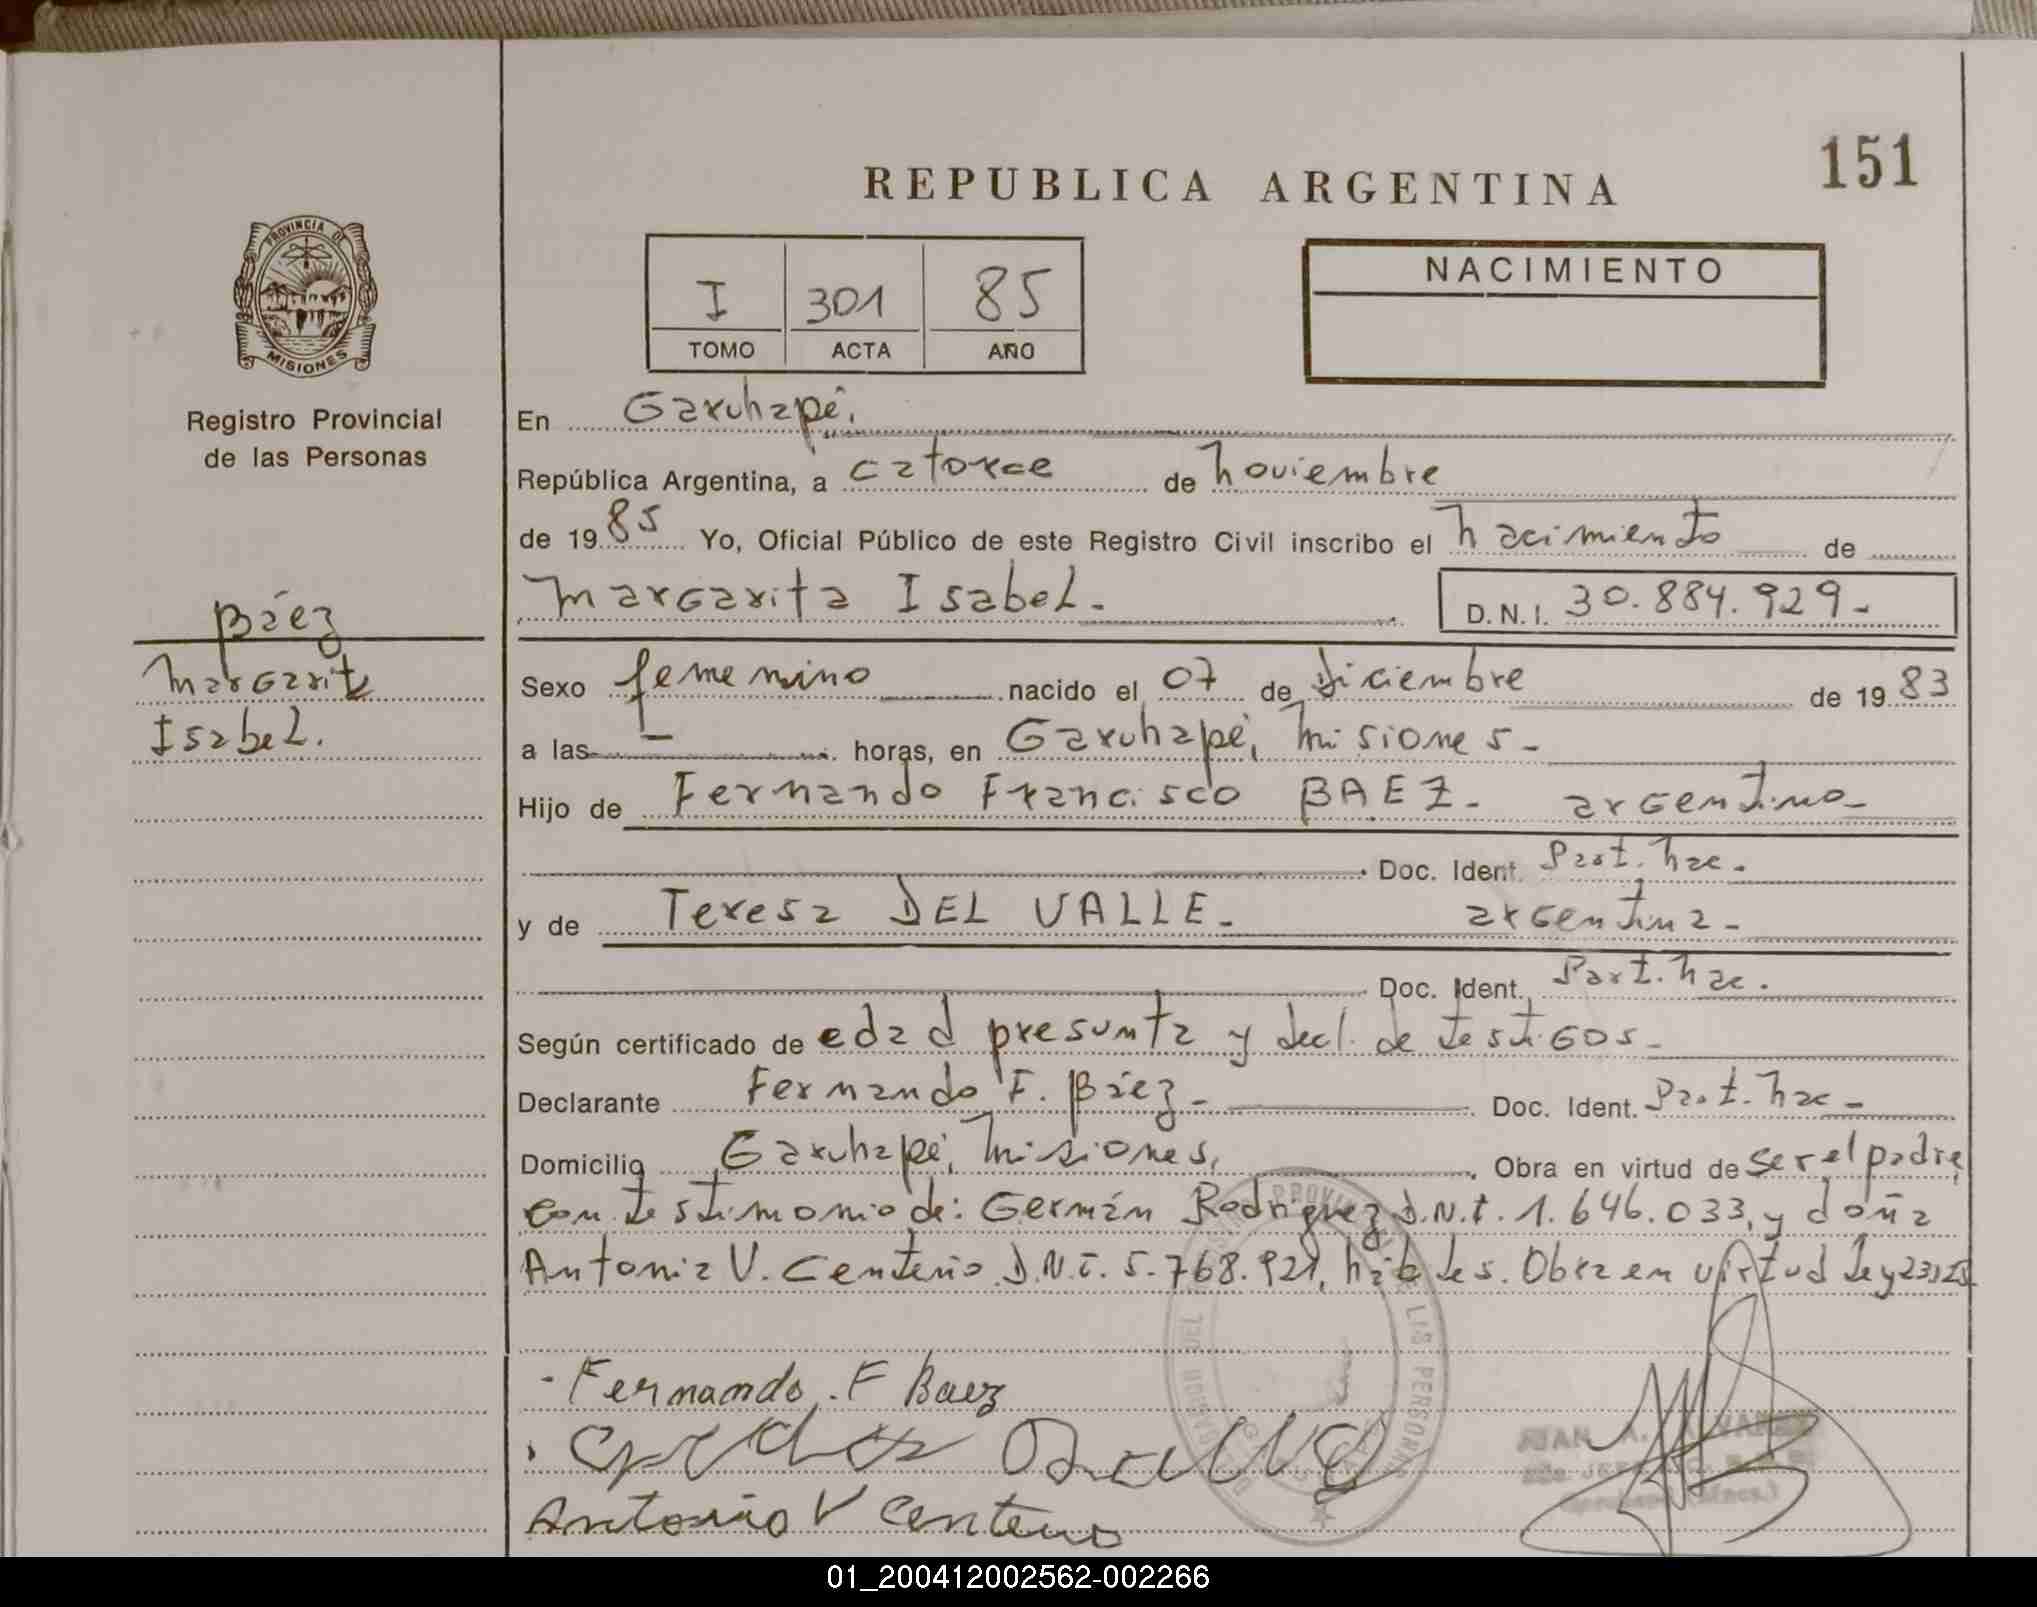 151
REPUBLICA ARGENTINA
PROVINCIA DE
MISIONES
Registro Provincial
de las Personas
I 301 85
TOMO ACTA AÑO
NACIMIENTO
En Garuhapé,
República Argentina, a catorce de noviembre
de 1985 Yo, Oficial Público de este Registro Civil inscribo el nacimiento de
Margarita Isabel.- D.N.I. 30.884.929-
Báez
Margarita
Isabel.
Sexo femenino nacido el 07 de diciembre de 1983
a las — horas, en Garuhapé, Misiones-
Hijo de Fernando Francisco BAEZ- argentino-
Doc. Ident. Part. nac.-
y de Teresa DEL VALLE- argentina-
Doc. Ident. Part. nac.
Según certificado de edad presunta y decl. de testigos-
Declarante Fernando F. Báez- Doc. Ident. Part. nac-
Domicilio Garuhapé, Misiones, Obra en virtud de ser el padre,
con testimonio de: Germán Rodriguez D.N.I. 1.646.033, y doña
Antonia V. Centeno D.N.I. 5.768.921, hábiles. Obra en virtud Ley
- Fernando. F Baez
Antonio V Centeno
01_200412002562-002266